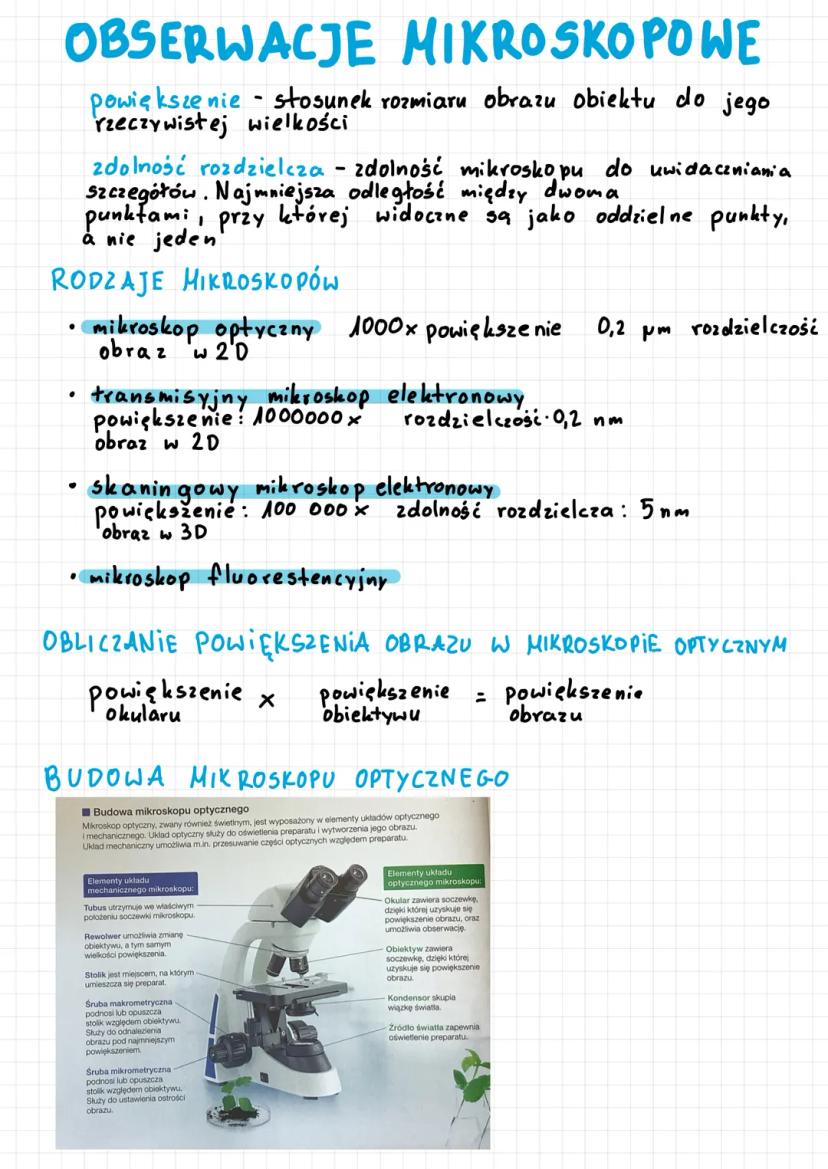 OBSERWACJE MIKROSKOPOWE
powiększenie - stosunek rozmiaru obrazu obiektu do jego
rzeczywistej wielkości
zdolność rozdzielcza - zdolność mikroskopu do uwidaczniania
szczegółów. Najmniejsza odległość między dwoma
punktami, przy której widoczne są jako oddzielne punkty,
a nie jeden
RODZAJE MIKROSKOPÓW
• mikroskop optyczny 1000x powiększenie 0,2 µm rozdzielczość
obraz w 2D
• transmisyjny mikroskop elektronowy
powiększenie: 1000000x rozdzielczość·0,2 nm
obraz w 2D
• skaningowy mikroskop elektronowy
powiększenie: 100 000x zdolność rozdzielcza: 5nm
obraz w 3D
• mikroskop fluorestencyjny
OBLICZANIE POWIĘKSZENIA OBRAZU W MIKROSKOPIE OPTYCZNYM
powiększenie x powiększenie = powiększenie
okularu obiektywu obrazu
BUDOWA MIKROSKOPU OPTYCZNEGO
Budowa mikroskopu optycznego
Mikroskop optyczny, zwany również świetlnym, jest wyposażony w elementy układów optycznego
i mechanicznego. Układ optyczny służy do oświetlenia preparatu i wytworzenia jego obrazu.
Układ mechaniczny umożliwia m.in. przesuwanie części optycznych względem preparatu.
Elementy układu
mechanicznego mikroskopu:
Tubus utrzymuje we właściwym
położeniu soczewki mikroskopu.
Rewolwer umożliwia zmianę
obiektywu, a tym samym
wielkości powiększenia.
Stolik jest miejscem, na którym
umieszcza się preparat.
Śruba makrometryczna
podnosi lub opuszcza
stolik względem obiektywu.
Służy do odnalezienia
obrazu pod najmniejszym
powiększeniem.
Śruba mikrometryczna
podnosi lub opuszcza
stolik względem obiektywu.
Służy do ustawienia ostrości
obrazu.
Elementy układu
optycznego mikroskopu:
Okular zawiera soczewkę,
dzięki której uzyskuje się
powiększenie obrazu, oraz
umożliwia obserwację.
Obiektyw zawiera
soczewkę, dzięki której
uzyskuje się powiększenie
obrazu.
Kondensor skupia
wiązkę światła.
Źródło światła zapewnia
oświetlenie preparatu.